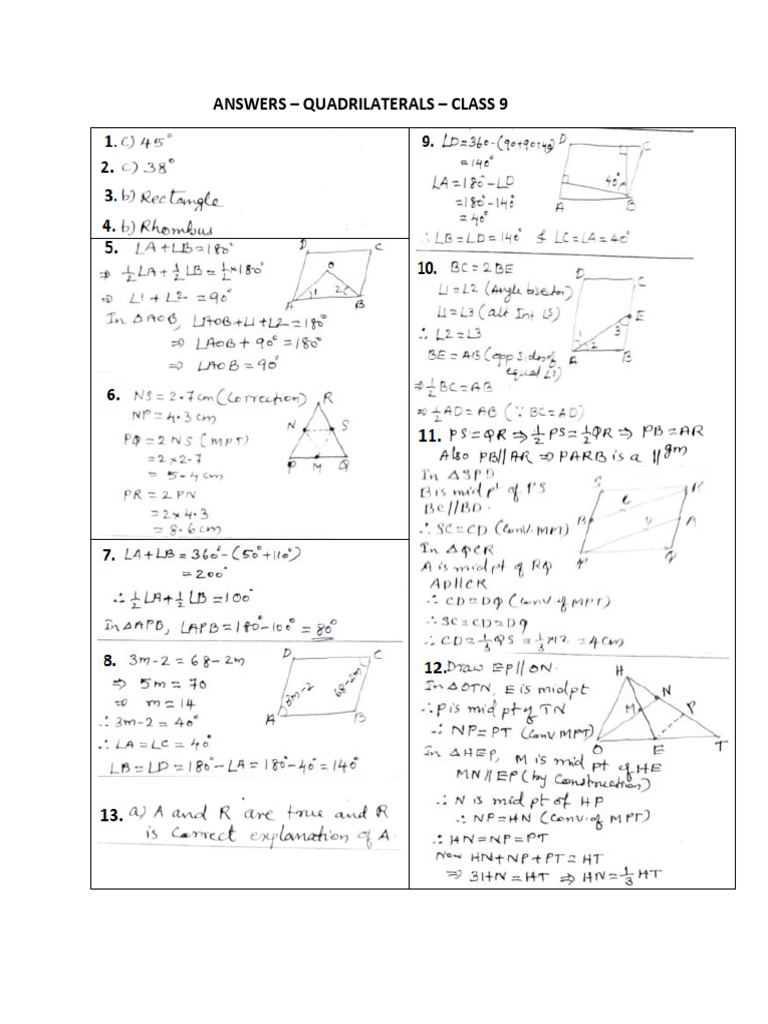 ANSWERS – QUADRILATERALS – CLASS 9
1. c) 45°
2. c) 38°
3. b) Rectangle
4. b) Rhombus
5. ∠A+∠B=180°
⇒ ½∠A+½∠B=½×180°
⇒ ∠1+∠2 =90°
In △AOB, ∠AOB+∠1+∠2=180°
⇒ ∠AOB+90°=180°
⇒ ∠AOB=90°
D C
O
1 2
A B
6. NS=2.7cm (Correction)
NP=4.3cm
PQ=2NS (MPT)
=2×2.7
=5.4cm
PR=2PN
=2×4.3
=8.6cm
R
N S
P M Q
7. ∠A+∠B=360°-(50°+110°)
=200°
∴½∠A+½∠B=100°
In △APB, ∠APB=180°-100°=80°
8. 3m-2=68-2m
⇒ 5m=70
⇒ m=14
∴3m-2=40°
∴∠A=∠C=40°
∠B=∠D=180°-∠A=180°-40°=140°
D C
3m-2 68-2m
A B
13. a) A and R are true and R
is correct explanation of A.
9. ∠D=360-(90+90+40)
=140°
∠A=180°-∠D
=180°-140°
=40°
∴∠B=∠D=140° & ∠C=∠A=40°
D C
40°
A B
10. BC=2BE
∠1=∠2 (Angle bisector)
∠1=∠3 (alt Int ∠S)
∴ ∠2=∠3
BE=AB (opp sides of
equal ∠s)
⇒½BC=AB
⇒½AD=AB (∵BC=AD)
D C
E
3
1 2
A B
11. PS=QR⇒½PS=½QR⇒PB=AR
Also PB//AR ⇒PARB is a //gm
In △SPD
B is mid pt of PS
BC//BD.
∴SC=CD (Conv. MPT)
In △QCR
A is mid pt of RQ
AD//CR
∴CD=DQ (Conv of MPT)
∴SC=CD=DQ
∴CD=⅓QS=⅓×12=4cm
S R
C
B A
P Q
12. Draw EP//ON.
In △OTN, E is midpt
∴P is mid pt of TN
∴ NP=PT (Conv MPT)
In △HEP, M is mid pt of HE
MN//EP (by Construction)
∴ N is mid pt of HP
∴ NP=HN (Conv. of MPT)
∴HN=NP=PT
Now HN+NP+PT=HT
⇒ 3HN=HT ⇒ HN=⅓HT
H
N
M P
O E T